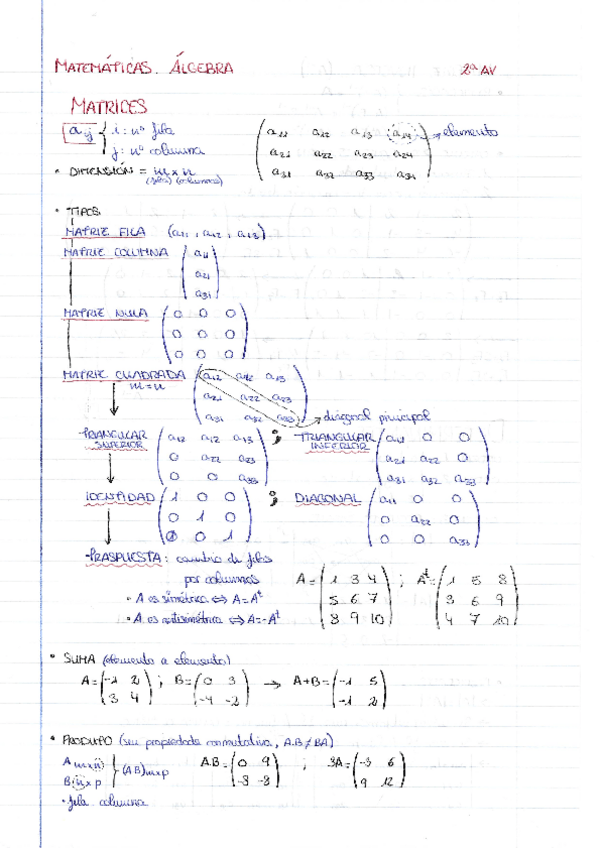 MATEMÁTICAS. ÁLGEBRA 2ª AV
MATRICES
aij { i: nº fila
j: nº columna
(a11 a12 a13 a14) → elemento
a21 a22 a23 a24
a31 a32 a33 a34
• DIMENSIÓN = m x n
(filas) (columnas)
• TIPOS
MATRIZ FILA (a11, a12, a13)
MATRIZ COLUMNA (a11
a21
a31)
MATRIZ NULA (0 0 0
0 0 0
0 0 0)
MATRIZ CUADRADA (a12 a12 a13
m=n a21 a22 a23
a31 a32 a33) → diagonal principal
TRIANGULAR SUPERIOR (a12 a12 a13 ; TRIANGULAR INFERIOR (a11 0 0
0 a22 a23) a21 a22 0
0 0 a33) a31 a32 a33)
IDENTIDAD (1 0 0 ; DIAGONAL (a11 0 0
0 1 0 0 a22 0
0 0 1) 0 0 a33)
TRASPUESTA: cambio de filas
por columnas A = (1 3 4 ; Aᵗ = (1 5 8
• A es simétrica ⇔ A = Aᵗ 5 6 7 3 6 9
• A es antisimétrica ⇔ A = -Aᵗ 8 9 10) 4 7 10)
• SUMA (elemento a elemento)
A = (-1 2 ; B = (0 3 → A+B = (-1 5
3 4) -4 -2) -1 2)
• PRODUCTO (sin propiedade conmutativa, A.B ≠ BA)
A m x n } (AB) m x p A.B = (0 9 ; 3A = (-3 6
B n x p -3 -3) 9 12)
• fila columna